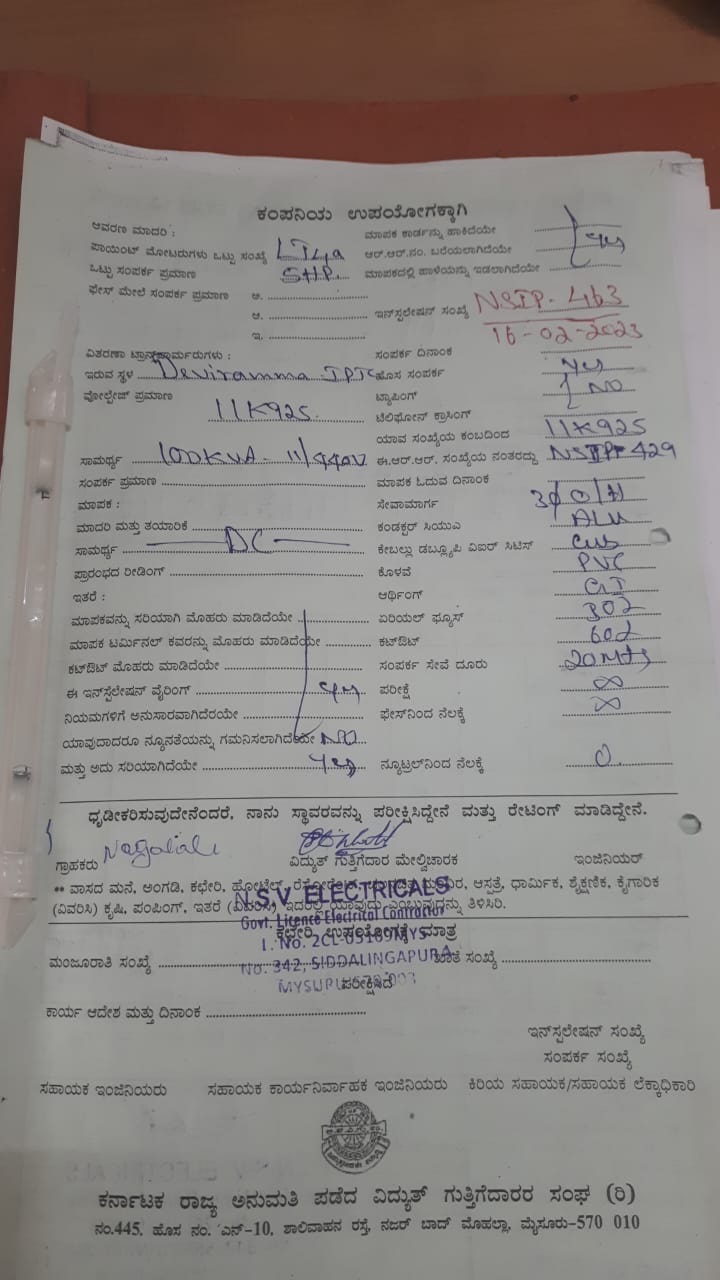 ಕಂಪನಿಯ ಉಪಯೋಗಕ್ಕಾಗಿ
ಆವರಣ ಮಾದರಿ : ಮಾಪಕ ಕಾರ್ಡನ್ನು ಹಾಕಿದೆಯೇ
ಪಾಯಿಂಟ್ ಮೋಟರುಗಳು ಒಟ್ಟು ಸಂಖ್ಯೆ LT4a ಆರ್.ಆರ್.ನಂ. ಬರೆಯಲಾಗಿದೆಯೇ yes
ಒಟ್ಟು ಸಂಪರ್ಕ ಪ್ರಮಾಣ 5HP. ಮಾಪಕದಲ್ಲಿ ಹಾಳೆಯನ್ನು ಇಡಲಾಗಿದೆಯೇ
ಫೇಸ್ ಮೇಲೆ ಸಂಪರ್ಕ ಪ್ರಮಾಣ ಅ.
ಆ. ಇನ್‌ಸ್ಟಲೇಷನ್ ಸಂಖ್ಯೆ NSIP-463
ಇ. 16-02-2023
ವಿತರಣಾ ಟ್ರಾನ್ಸ್‌ಫಾರ್ಮರುಗಳು : ಸಂಪರ್ಕ ದಿನಾಂಕ
ಇರುವ ಸ್ಥಳ Deviramma IPTC ಹೊಸ ಸಂಪರ್ಕ yes
ವೋಲ್ಟೇಜ್ ಪ್ರಮಾಣ 11K925 ಟ್ಯಾಪಿಂಗ್ NO
ಟೆಲಿಫೋನ್ ಕ್ರಾಸಿಂಗ್
ಯಾವ ಸಂಖ್ಯೆಯ ಕಂಬದಿಂದ 11K925
ಸಾಮರ್ಥ್ಯ 100KVA- 11/440V ಈ.ಆರ್.ಆರ್. ಸಂಖ್ಯೆಯ ನಂತರದ್ದು NSIP-429
ಸಂಪರ್ಕ ಪ್ರಮಾಣ ಮಾಪಕ ಓದುವ ದಿನಾಂಕ
ಮಾಪಕ : ಸೇವಾಮಾರ್ಗ 3Ø O/H
ಮಾದರಿ ಮತ್ತು ತಯಾರಿಕೆ ಕಂಡಕ್ಟರ್ ಸಿಯುಎ ALU
ಸಾಮರ್ಥ್ಯ DC ಕೇಬಲ್ಲು ಡಬ್ಲ್ಯೂಪಿ ವಿಐಆರ್ ಸಿಟಿಸ್
ಪ್ರಾರಂಭದ ರೀಡಿಂಗ್ ಕೊಳವೆ PVC
ಇತರೆ : ಆರ್ಥಿಂಗ್ GI
ಮಾಪಕವನ್ನು ಸರಿಯಾಗಿ ಮೊಹರು ಮಾಡಿದೆಯೇ ಏರಿಯಲ್ ಫ್ಯೂಸ್
ಮಾಪಕ ಟರ್ಮಿನಲ್ ಕವರನ್ನು ಮೊಹರು ಮಾಡಿದೆಯೇ ಕಟ್‌ಔಟ್
ಕಟ್‌ಔಟ್ ಮೊಹರು ಮಾಡಿದೆಯೇ ಸಂಪರ್ಕ ಸೇವೆ ದೂರು 20Mts
ಈ ಇನ್‌ಸ್ಟೆಲೇಷನ್ ವೈರಿಂಗ್ yes ಪರೀಕ್ಷೆ ∞
ನಿಯಮಗಳಿಗೆ ಅನುಸಾರವಾಗಿದೆರಯೇ ಫೇಸ್‌ನಿಂದ ನೆಲಕ್ಕೆ ∞
ಯಾವುದಾದರೂ ನ್ಯೂನತೆಯನ್ನು ಗಮನಿಸಲಾಗಿದೆಯೇ NO
ಮತ್ತು ಅದು ಸರಿಯಾಗಿದೆಯೇ Yes ನ್ಯೂಟ್ರಲ್‌ನಿಂದ ನೆಲಕ್ಕೆ 0
ಧೃಡೀಕರಿಸುವುದೇನೆಂದರೆ, ನಾನು ಸ್ಥಾವರವನ್ನು ಪರೀಕ್ಷಿಸಿದ್ದೇನೆ ಮತ್ತು ರೇಟಿಂಗ್ ಮಾಡಿದ್ದೇನೆ.
ಗ್ರಾಹಕರು ವಿದ್ಯುತ್ ಗುತ್ತಿಗೆದಾರ ಮೇಲ್ವಿಚಾರಕ ಇಂಜಿನಿಯರ್
** ವಾಸದ ಮನೆ, ಅಂಗಡಿ, ಕಛೇರಿ, ಹೋಟೆಲ್, ಆಸ್ಪತ್ರೆ, ಧಾರ್ಮಿಕ, ಶೈಕ್ಷಣಿಕ, ಕೈಗಾರಿಕ
N.S.V. ELECTRICALS
(ವಿವರಿಸಿ) ಕೃಷಿ, ಪಂಪಿಂಗ್, ಇತರೆ (ವಿವರಿಸಿ) ಇದರಲ್ಲಿ ಯಾವುದು ಎಂಬುವುದನ್ನು ತಿಳಿಸಿರಿ.
Govt. Licence Electrical Contractor
ಕಛೇರಿ ಉಪಯೋಗಕ್ಕೆ ಮಾತ್ರ
ಮಂಜೂರಾತಿ ಸಂಖ್ಯೆ ಖಾತೆ ಸಂಖ್ಯೆ
No. 342, SIDDALINGAPURA
ಪರೀಕ್ಷಿಸಿದೆ
ಕಾರ್ಯ ಆದೇಶ ಮತ್ತು ದಿನಾಂಕ
ಇನ್‌ಸ್ಟಲೇಷನ್ ಸಂಖ್ಯೆ
ಸಂಪರ್ಕ ಸಂಖ್ಯೆ
ಸಹಾಯಕ ಇಂಜಿನಿಯರು ಸಹಾಯಕ ಕಾರ್ಯನಿರ್ವಾಹಕ ಇಂಜಿನಿಯರು ಕಿರಿಯ ಸಹಾಯಕ/ಸಹಾಯಕ ಲೆಕ್ಕಾಧಿಕಾರಿ
ಕರ್ನಾಟಕ ರಾಜ್ಯ ಅನುಮತಿ ಪಡೆದ ವಿದ್ಯುತ್ ಗುತ್ತಿಗೆದಾರರ ಸಂಘ (ರಿ)
ನಂ.445, ಹೊಸ ನಂ. ಎನ್-10, ಶಾಲಿವಾಹನ ರಸ್ತೆ, ನಜರ್ ಬಾದ್ ಮೊಹಲ್ಲಾ, ಮೈಸೂರು-570 010